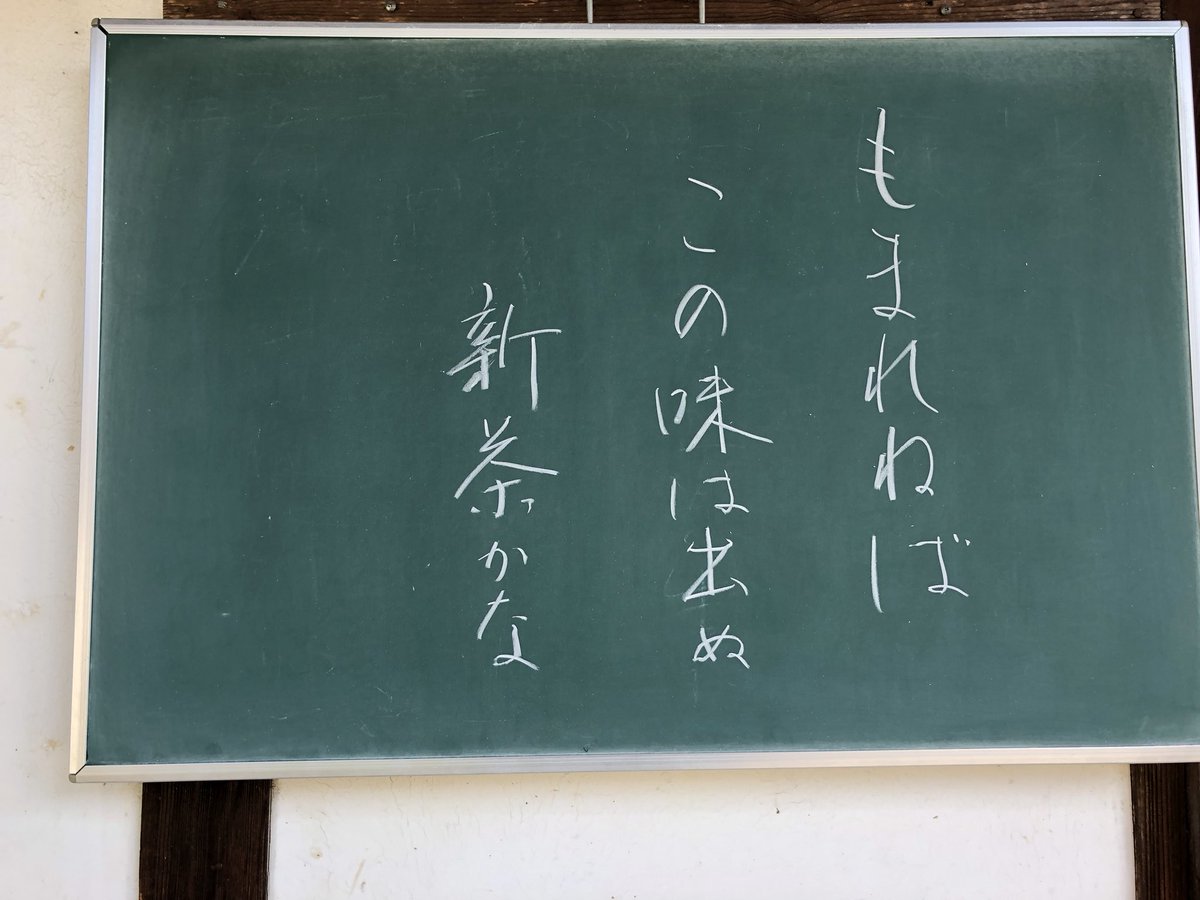 もまれねば
この味は出ぬ
新茶かな